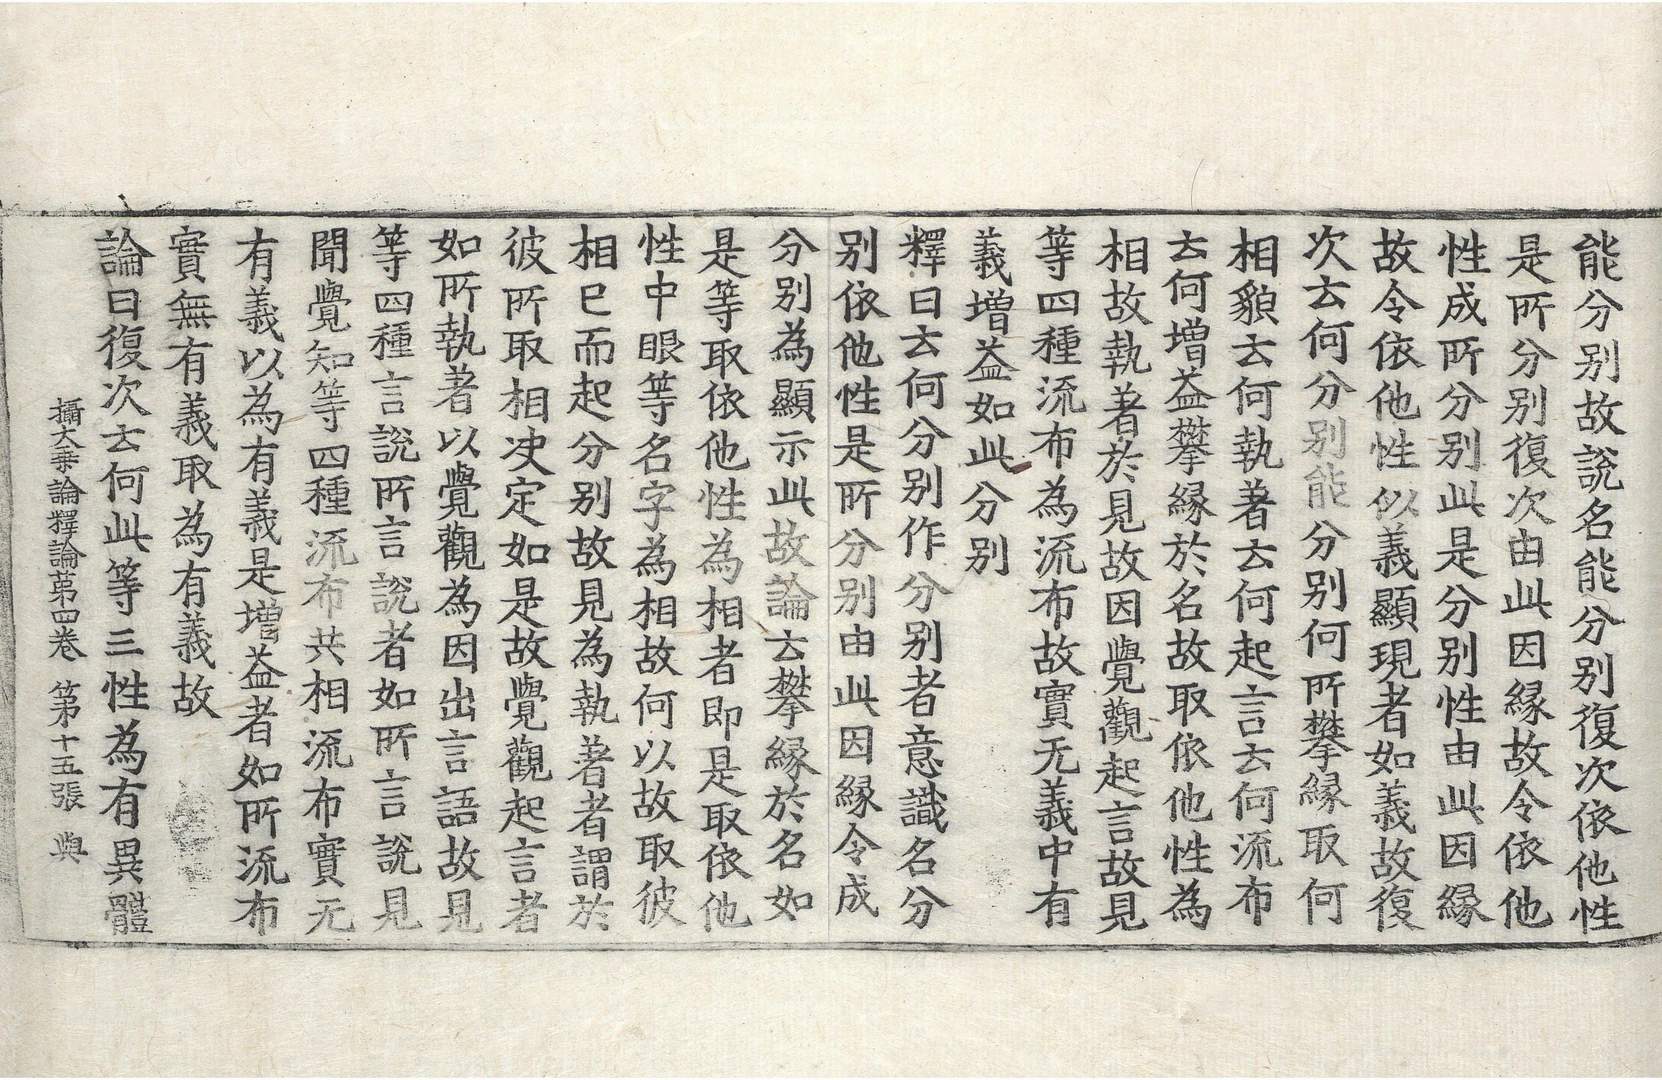 能分别故說名能分别復次依他性
是所分别復次由此因縁故令依他
性成所分别此是分别性由此因縁
故令依他性似義顯現者如義故復
次云何分别能分别何所攀縁取何
相貌云何執著云何起言云何流布
云何增益攀縁於名故取依他性為
相故執著於見故因覺觀起言故見
等四種流布為流布故實无義中有
義增益如此分别
釋曰云何分别作分别者意識名分
别依他性是所分别由此因縁令成
分别為顯示此故論云攀縁於名如
是等取依他性為相者即是取依他
性中眼等名字為相故何以故取彼
相已而起分别故見為執著者謂於
彼所取相决定如是故覺觀起言者
如所執著以覺觀為因出言語故見
等四種言說所言說者如所言說見
聞覺知等四種流布共相流布實无
有義以為有義是增益者如所流布
實無有義取為有義故
論曰復次云何此等三性為有異體
攝大乗論釋論苐四卷 第十五張 典